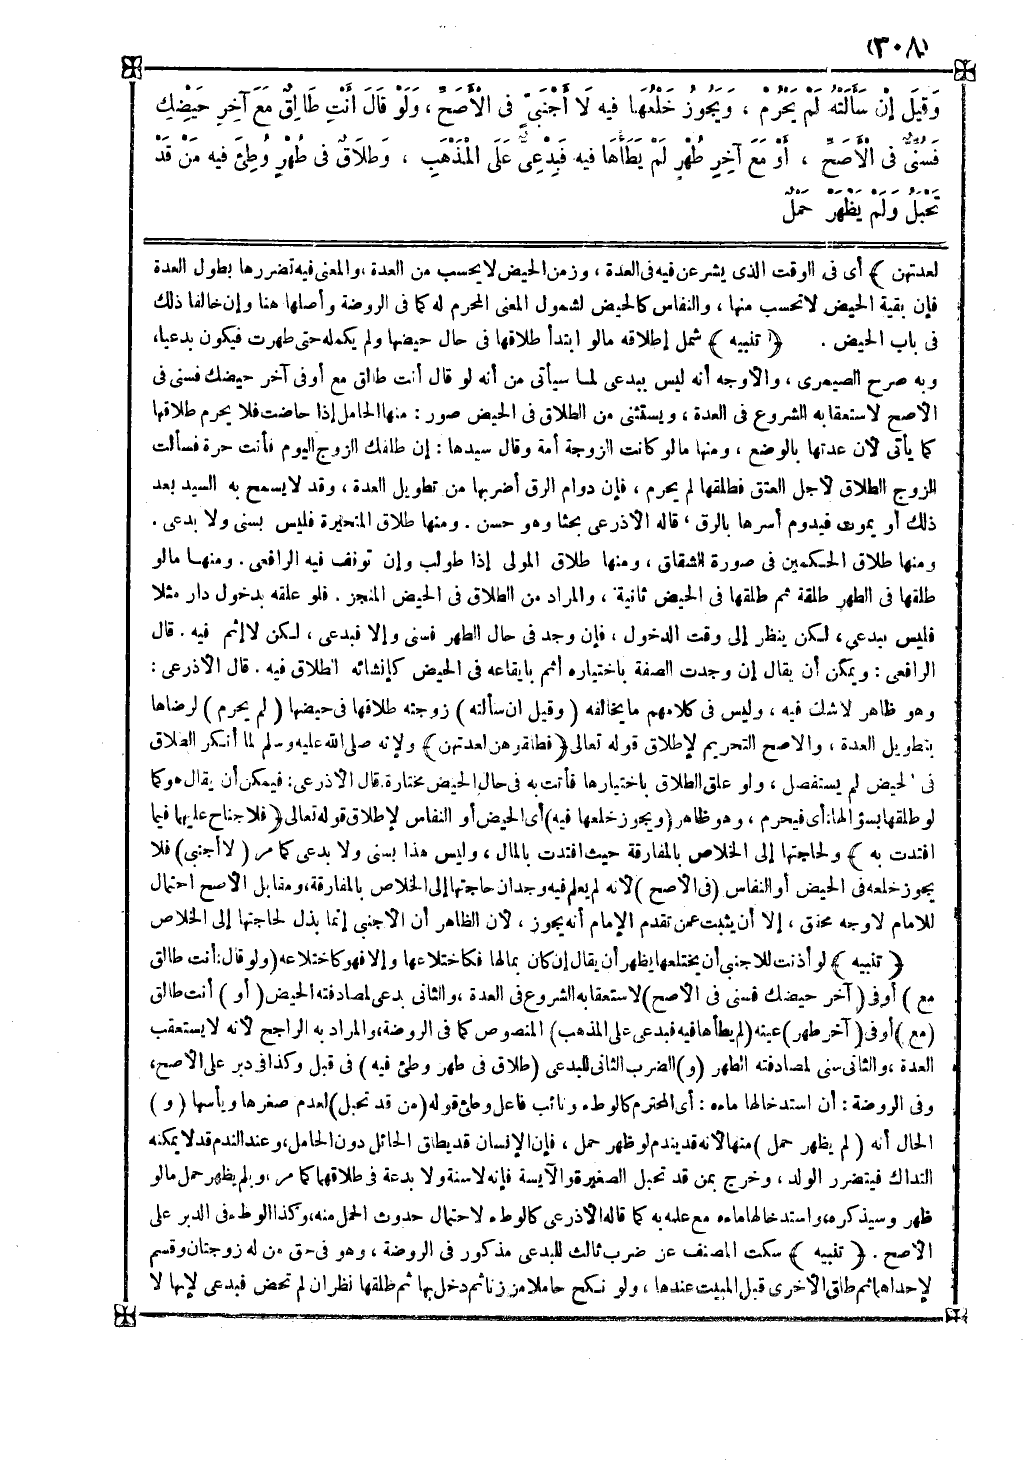 (٣٠٨)
وَقِيلَ إِنْ سَأَلَتْهُ لَمْ يَحْرُمْ ، وَيَجُوزُ خُلْعُهَا فيه لَا أَجْنَبِيٍّ فى الْأَصَحِّ ، وَلَوْ قَالَ أَنْتِ طَالِقٌ مَعَ آخِرِ حَيْضِكِ
فَسُنِّىٌّ فى الْأَصَحِّ ، أَوْ مَعَ آخِرِ طُهْرٍ لَمْ يَطَأْهَا فيه فَبِدْعِىٌّ عَلَى المَذْهَبِ ، وَطَلَاقٌ فى طُهْرٍ وُطِئَ فيه مَنْ قَدْ
تَحْبَلُ وَلَمْ يَظْهَرْ حَمْلٌ
لعدتهن ﴾ أى فى الوقت الذى يشرعن فيه فى العدة ، وزمن الحيض لا يحسب من العدة ، والمعنى فيه تضررها بطول العدة
فإن بقية الحيض لا تحسب منها ، والنفاس كالحيض لشمول المعنى المحرم له كما فى الروضة وأصلها هنا وإن خالفا ذلك
فى باب الحيض . ﴿ تنبيه ﴾ شمل إطلاقه مالو ابتدأ طلاقها فى حال حيضها ولم يكمله حتى طهرت فيكون بدعيا،
وبه صرح الصيمرى ، والأوجه أنه ليس ببدعى لما سيأتى من أنه لو قال أنت طالق مع أو فى آخر حيضك فسنى فى
الأصح لاستعقابه الشروع فى العدة ، ويستثنى من الطلاق فى الحيض صور : منها الحامل إذا حاضت فلا يحرم طلاقها
كما يأتى لأن عدتها بالوضع ، ومنها مالو كانت الزوجة أمة وقال سيدها : إن طلقك الزوج اليوم فأنت حرة فسألت
الزوج الطلاق لأجل العتق فطلقها لم يحرم ، فإن دوام الرق أضربها من تطويل العدة ، وقد لا يسمح به السيد بعد
ذلك أو يموت فيدوم أسرها بالرق ، قاله الأذرعى بحثا وهو حسن . ومنها طلاق المتحيرة فليس بسنى ولا بدعى .
ومنها طلاق الحكمين فى صورة الشقاق ، ومنها طلاق المولى إذا طولب وإن توقف فيه الرافعى . ومنها مالو
طلقها فى الطهر طلقة ثم طلقها فى الحيض ثانية ، والمراد من الطلاق فى الحيض المنجز . فلو علقه بدخول دار مثلا
فليس ببدعى ، لكن ينظر إلى وقت الدخول ، فإن وجد فى حال الطهر فسنى وإلا فبدعى ، لكن لا إثم فيه . قال
الرافعى : ويمكن أن يقال إن وجدت الصفة باختياره أثم بايقاعه فى الحيض كإنشائه الطلاق فيه . قال الأذرعى :
وهو ظاهر لاشك فيه ، وليس فى كلامهم ما يخالفه ( وقيل ان سألته ) زوجته طلاقها فى حيضها ( لم يحرم ) لرضاها
بتطويل العدة ، والأصح التحريم لإطلاق قوله تعالى ﴿ فطلقوهن لعدتهن ﴾ ولإنه صلى الله عليه وسلم لما أنكر الطلاق
فى الحيض لم يستفصل ، ولو علق الطلاق باختيارها فأتت به فى حال الحيض مختارة. قال الأذرعى : فيمكن أن يقال هو كما
لو طلقها بسؤالها: أى فيحرم ، وهو ظاهر (ويجوز خلعها فيه) أى الحيض أو النفاس لإطلاق قوله تعالى ﴿ فلا جناح عليهما فيما
افتدت به ﴾ ولحاجتها إلى الخلاص بالمفارقة حيث افتدت بالمال ، وليس هذا بسنى ولا بدعى كما مر ( لا أجنبى) فلا
يجوز خلعه فى الحيض أو النفاس (فى الأصح ) لأنه لم يعلم فيه وجدان حاجتها إلى الخلاص بالمفارقة، ومقابل الأصح احتمال
للامام لاوجه محقق ، إلا أن يثبت عمن تقدم الإمام أنه يجوز ، لأن الظاهر أن الأجنبى إنما بذل لحاجتها إلى الخلاص
﴿ تنبيه ﴾ لو أذنت للاجنبى أن يختلعها يظهر أن يقال إن كان بمالها فكاختلاعها وإلا فهو كاختلاعه (ولو قال: أنت طالق
مع ) أو فى ( آخر حيضك فسنى فى الأصح) لاستعقابه الشروع فى العدة ، والثانى بدعى لمصادفته الحيض ( أو ) أنت طالق
(مع ) أو فى ( آخر طهر) عينه (لم يطأها فيه فبدعى على المذهب) المنصوص كما فى الروضة، والمراد به الراجح لأنه لا يستعقب
العدة ، والثانى سنى لمصادفته الطهر (و) الضرب الثانى للبدعى (طلاق فى طهر وطئ فيه ) فى قبل وكذا فى دبر على الأصح ،
وفى الروضة : أن استدخالها ماءه : أى المحترم كالوطء ونائب فاعل وطئ قوله (من قد تحبل) لعدم صغرها ويأسها ( و )
الحال أنه ( لم يظهر حمل ) منها لأنه قد يندم لو ظهر حمل ، فإن الإنسان قد يطلق الحائل دون الحامل، وعند الندم قد لا يمكنه
التدارك فيتضرر الولد ، وخرج بمن قد تحبل الصغيرة والآيسة فإنه لاسنة ولا بدعة فى طلاقهما كما مر ، وبلم يظهر حمل مالو
ظهر وسيذكره، واستدخالها ماءه مع علمه به كما قاله الأذرعى كالوطء لاحتمال حدوث الحمل منه، وكذا الوطء فى الدبر على
الأصح . ﴿ تنبيه ﴾ سكت المصنف عن ضرب ثالث للبدعى مذكور فى الروضة ، وهو فى حق من له زوجتان وقسم
لإحداهما ثم طلق الأخرى قبل المبيت عندها ، ولو نكح حاملا من زنا ثم دخل بها ثم طلقها نظر ان لم تحض فبدعى لإنها لا